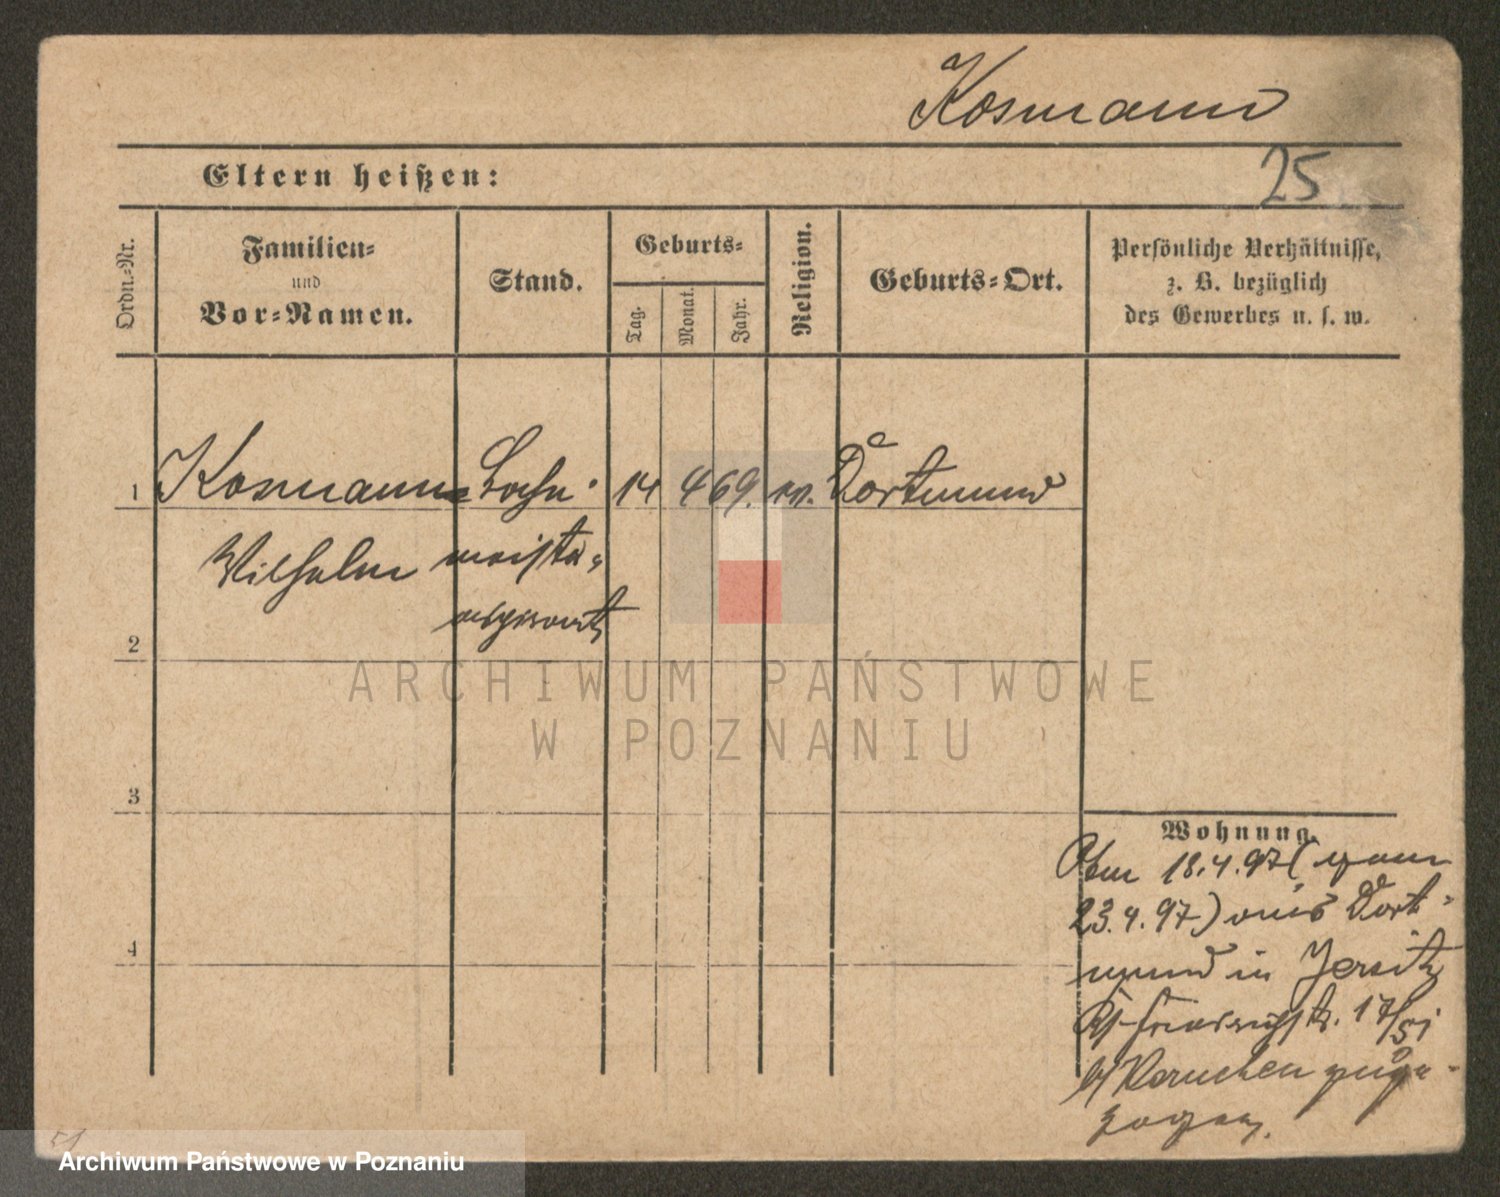 Kosmann
25
Eltern heißen:
Ordn.-Nr.
Familien-
und
Vor-Namen.
Stand.
Geburts-
Tag.
Monat.
Jahr.
Religion.
Geburts-Ort.
Persönliche Verhältnisse,
z. B. bezüglich
des Gewerbes u. s. w.
1 Kosmann 14 4 69. Dortmund
Wilhelm meister-
aspirant
2
3
4
Wohnung.
Am 18.4.97 (gem
23.4.97) aus Dort-
mund in Jersitz
17/51
b/ zuge-
zogen.
ARCHIWUM PAŃSTWOWE
W POZNANIU
51
Archiwum Państwowe w Poznaniu